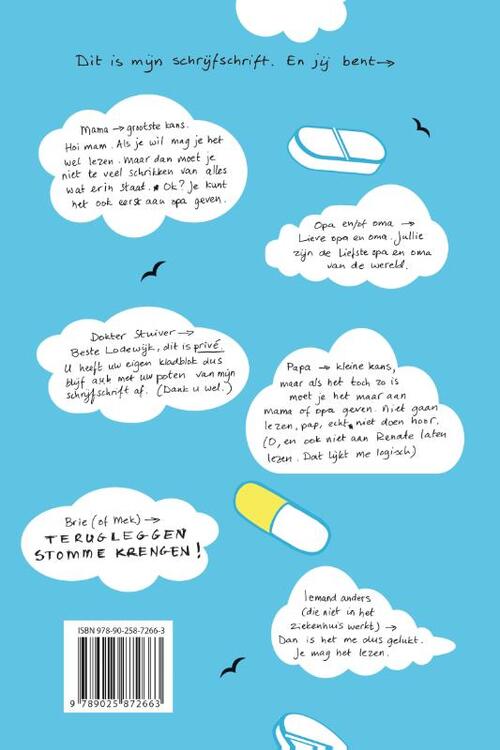 Dit is mijn schrijfschrift. En jij bent→
Mama → grootste kans.
Hoi mam. Als je wil mag je het
wel lezen. Maar dan moet je
niet te veel schrikken van alles
wat erin staat. Ok? Je kunt
het ook eerst aan opa geven.
Opa en/of oma →
Lieve opa en oma. Jullie
zijn de liefste opa en oma
van de wereld.
Dokter Stuiver →
Beste Lodewijk, dit is privé.
U heeft uw eigen kladblok dus
blijf aub met uw poten van mijn
schrijfschrift af. (Dank u wel.)
Papa → kleine kans,
maar als het toch zo is
moet je het maar aan
mama of opa geven. Niet gaan
lezen, pap, echt niet doen hoor.
(O, en ook niet aan Renate laten
lezen. Dat lijkt me logisch)
Brie (of Mek) →
TERUGLEGGEN
STOMME KRENGEN!
Iemand anders
(die niet in het
ziekenhuis werkt) →
Dan is het me dus gelukt.
Je mag het lezen.
ISBN 978-90-258-7266-3
9 789025 872663